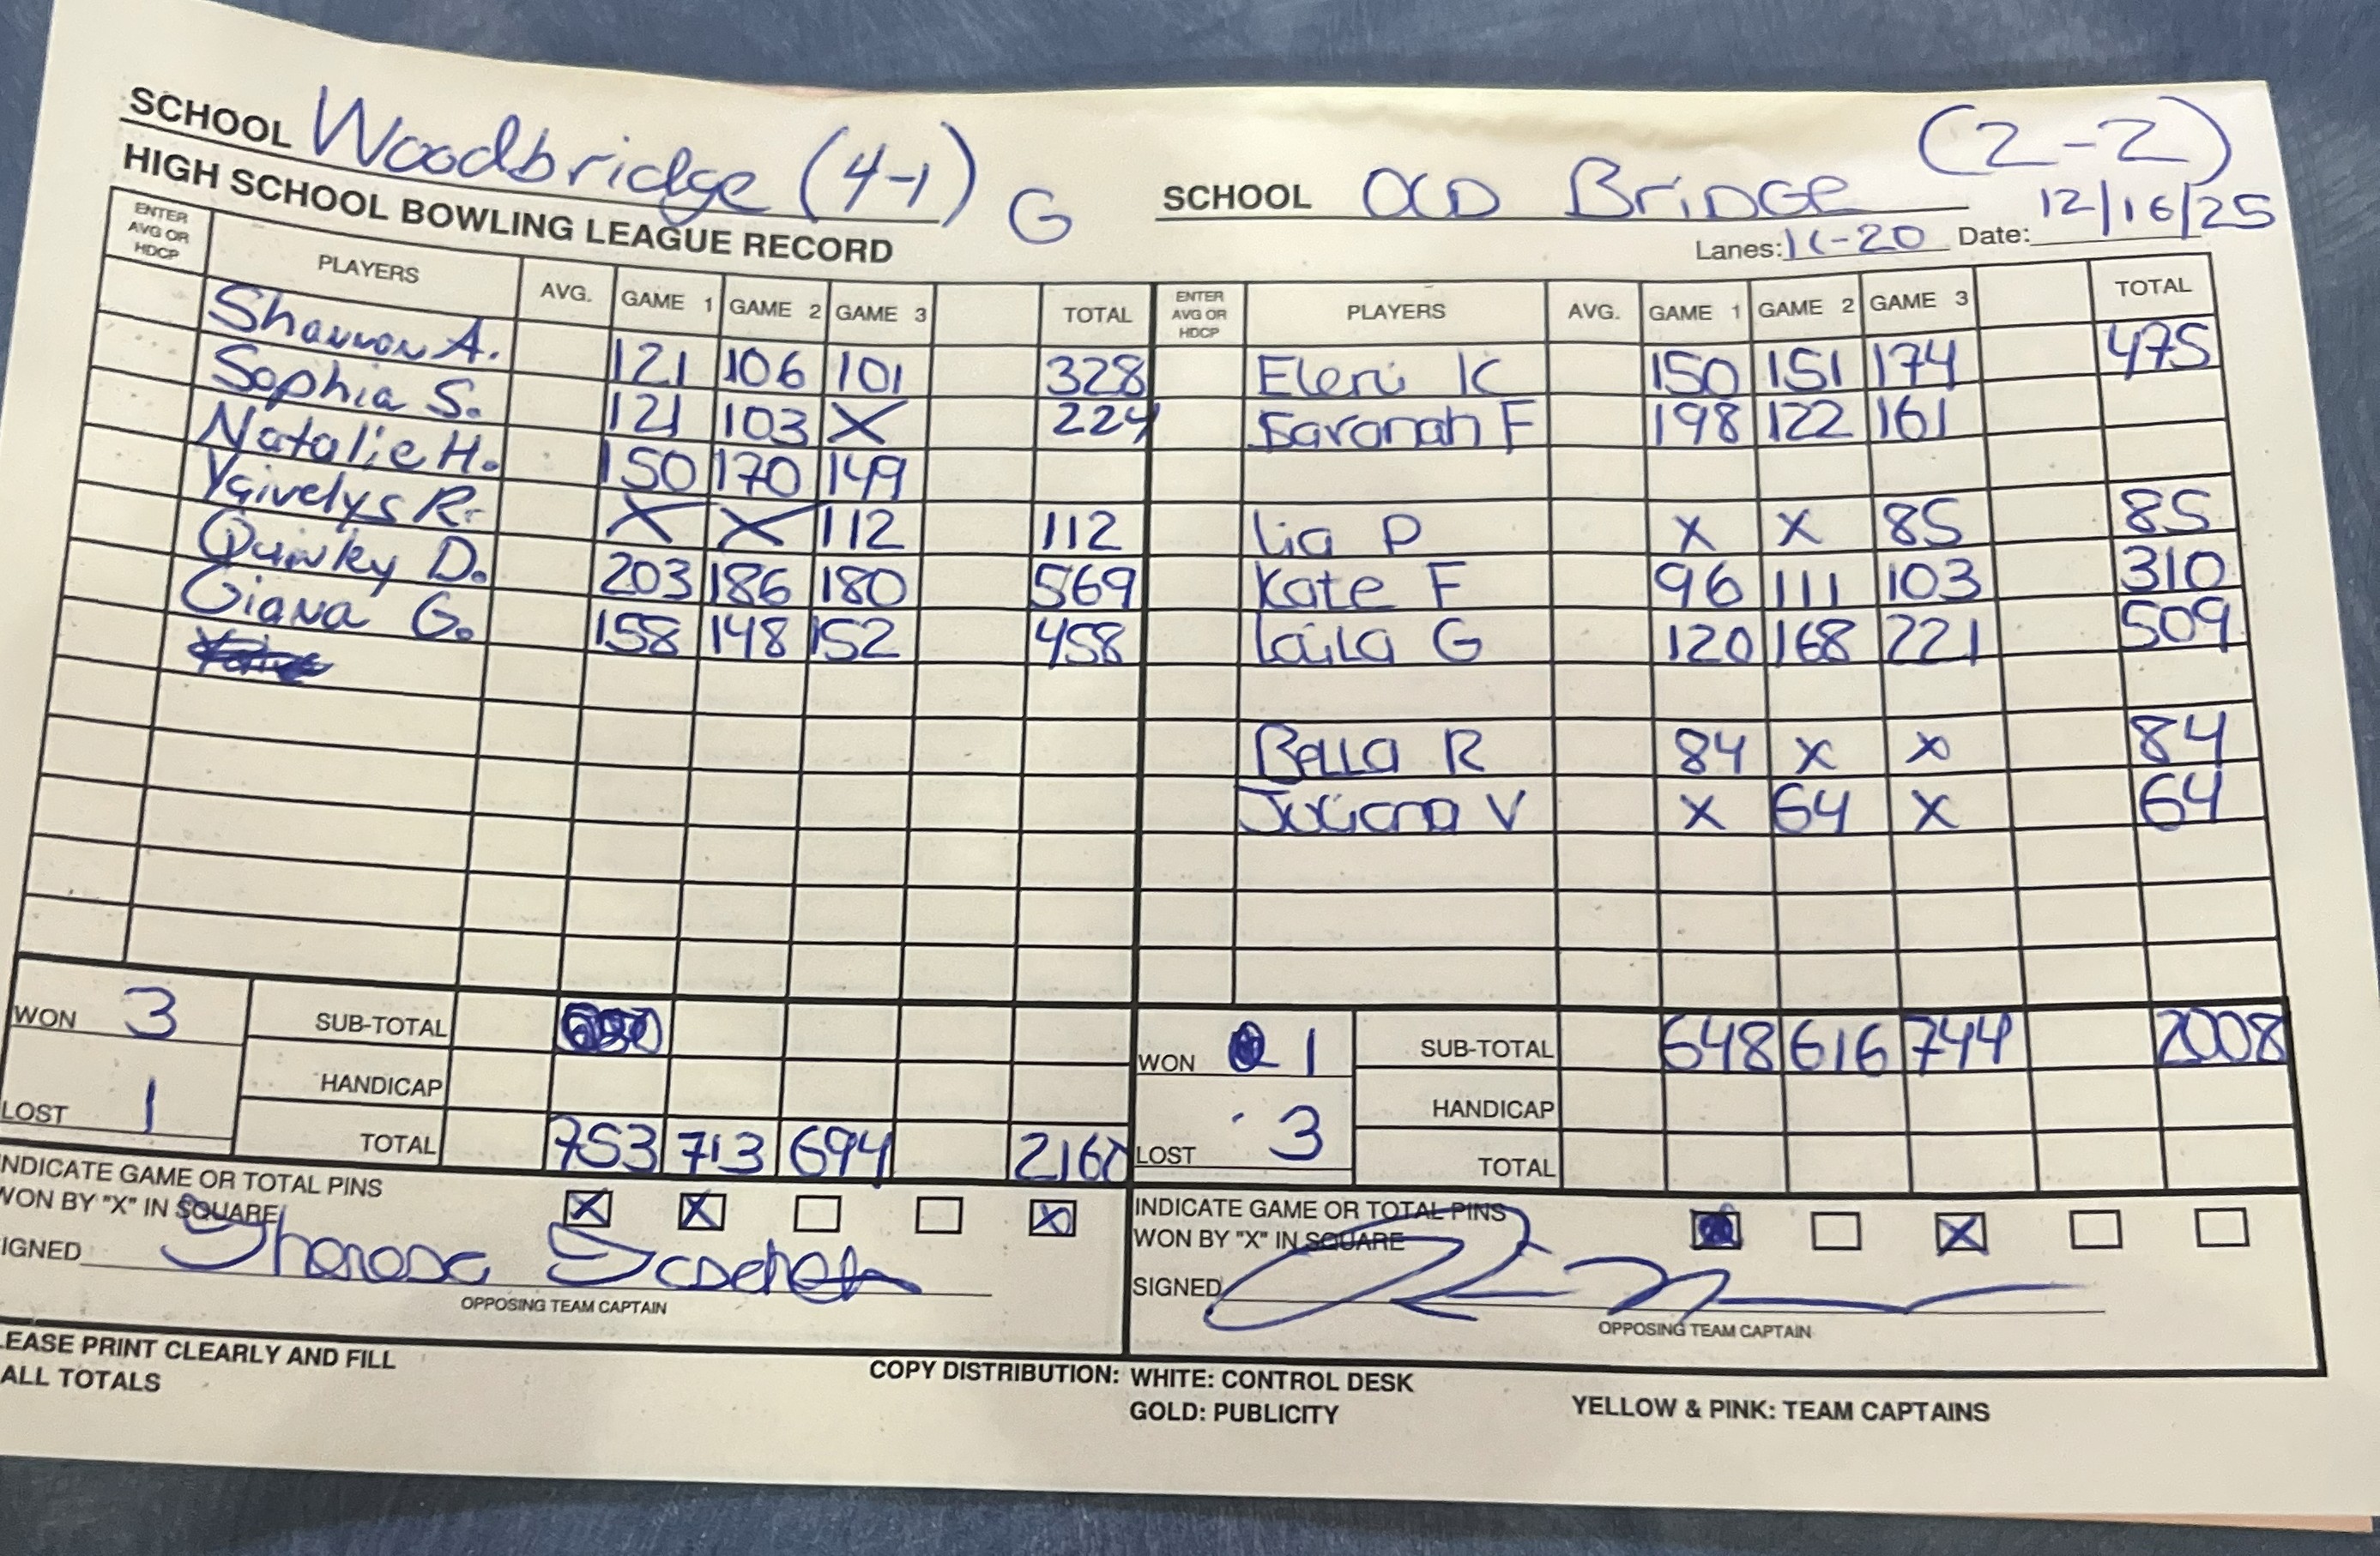 SCHOOL Woodbridge (4-1) G
HIGH SCHOOL BOWLING LEAGUE RECORD
SCHOOL OLD BRIDGE (2-2)
Lanes: Date: 12/16/25
ENTER AVG OR HDCP PLAYERS AVG. GAME 1 GAME 2 GAME 3 TOTAL
Shannon A. 121 106 101 328
Sophia S. 121 103 X 224
Natalie H. 150 170 149
Yaivelys R. X X 112 112
Quinley D. 203 186 180 569
Giana G. 158 148 152 458
WON 3
LOST 1
SUB-TOTAL
HANDICAP
TOTAL 753 713 694 2160
INDICATE GAME OR TOTAL PINS
WON BY "X" IN SQUARE X X X
SIGNED
OPPOSING TEAM CAPTAIN
ENTER AVG OR HDCP PLAYERS AVG. GAME 1 GAME 2 GAME 3 TOTAL
Eleni K 150 151 174 475
Savanah F 198 122 161
Lia P X X 85 85
Kate F 96 111 103 310
Laila G 120 168 221 509
Bella R 84 X X 84
Juliana V X 64 X 64
WON 1
LOST 3
SUB-TOTAL 648 616 744 2008
HANDICAP
TOTAL
INDICATE GAME OR TOTAL PINS
WON BY "X" IN SQUARE X
SIGNED
OPPOSING TEAM CAPTAIN
LEASE PRINT CLEARLY AND FILL
ALL TOTALS
COPY DISTRIBUTION: WHITE: CONTROL DESK
GOLD: PUBLICITY
YELLOW & PINK: TEAM CAPTAINS